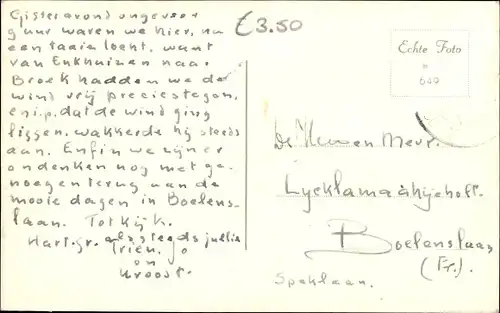 Gisteravond ongeveer
9 uur waren we hier, na
een taaie tocht, want
van Enkhuizen naar
Broek hadden we de
wind vrij precies tegen,
en i.p. dat de wind ging
liggen, wakkerde hij steeds
aan. Enfin we zijn er
ondenken nog met ge-
noegen terug aan de
mooie dagen in Boelens-
laan. Tot Kijk.
Hart. gr. als steeds jullie
Trien,
en
Kroost.
£3.50
Echte Foto
649
De Heer en Mevr.
Lycklama à Nijeholt.
Boelenslaan
(Fr.).
Speklaan.